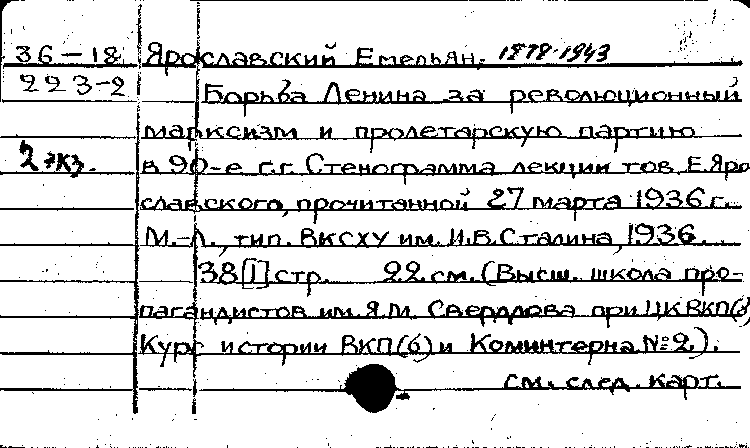 36-18 Ярославский Емельян. 1878-1943
223-2 Борьба Ленина за революционный
марксизм и пролетарскую партию
2 экз. в 90-е г.г. Стенограмма лекции тов. Е. Яро
славского, прочитанной 27 марта 1936 г.
М.-Л., тип. ВКСХУ им. И.В. Сталина, 1936.
38[1] стр. 22 см. (Высш. школа про-
пагандистов им. Я.М. Свердлова при ЦК ВКП(б)
Курс истории ВКП(б) и Коминтерна. № 2.).
см. след. карт.